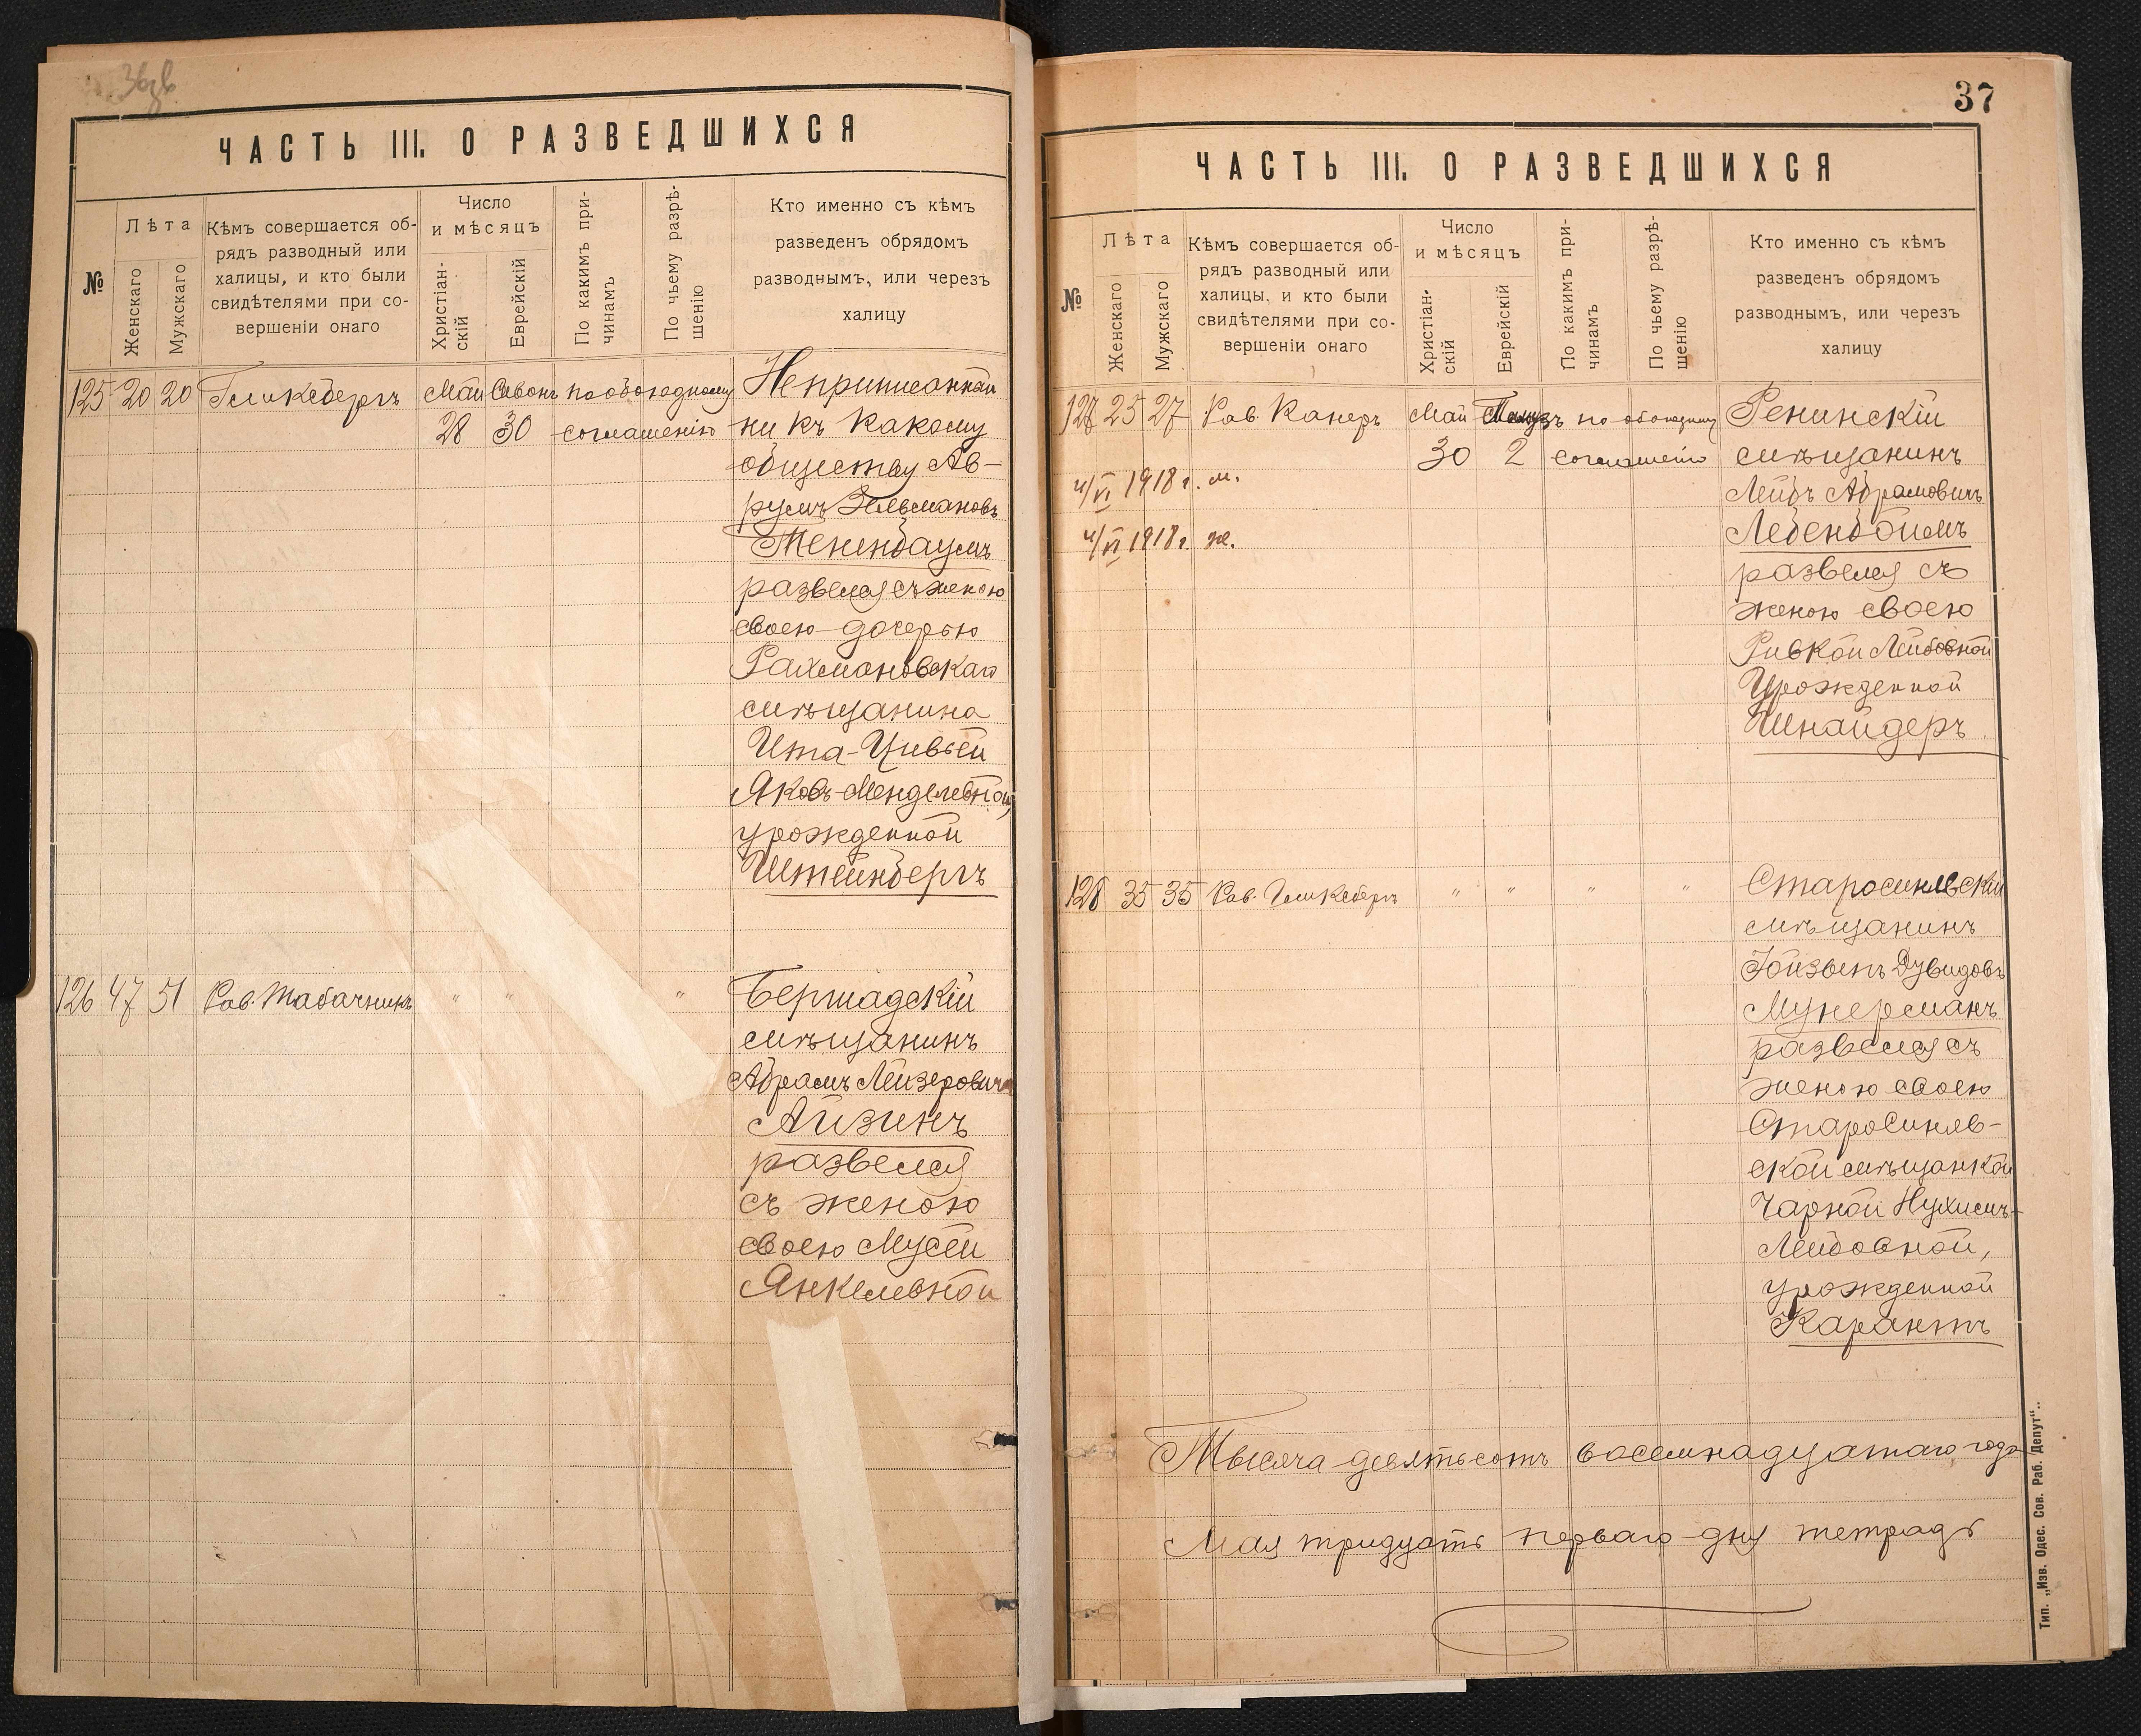 36зв
ЧАСТЬ III. О РАЗВЕДШИХСЯ
№
Лѣта
Женскаго
Мужскаго
Кѣмъ совершается об-
рядъ разводный или
халицы, и кто были
свидѣтелями при со-
вершеніи онаго
Число
и мѣсяцъ
Христіан-
скій
Еврейскій
По какимъ при-
чинамъ
По чьему разрѣ-
шенію
Кто именно съ кѣмъ
разведенъ обрядомъ
разводнымъ, или черезъ
халицу
125 20 20 Гликсбергъ Май Сивонъ по обоюдному Неприписанный
28 30 соглашенію ни къ какому
обществу Аб-
румъ Зельмановъ
Тененбаумъ
развелся съ женою
своею дочерью
Рахмановскаго
мѣщанина
Ита-Цивьей
Яковъ-Менделевной,
урожденной
Штейнбергъ
126 47 51 Рав. Табачникъ " " " Бершадскій
мѣщанинъ
Абрамъ Лейзеровичъ
Айзинъ
развелся
съ женою
своею Мусей
Янкелевной
37
ЧАСТЬ III. О РАЗВЕДШИХСЯ
№
Лѣта
Женскаго
Мужскаго
Кѣмъ совершается об-
рядъ разводный или
халицы, и кто были
свидѣтелями при со-
вершеніи онаго
Число
и мѣсяцъ
Христіан-
скій
Еврейскій
По какимъ при-
чинамъ
По чьему разрѣ-
шенію
Кто именно съ кѣмъ
разведенъ обрядомъ
разводнымъ, или черезъ
халицу
127 25 27 Рав. Канеръ Май Тамузъ по обоюдному Ренинскій
30 2 соглашенію мѣщанинъ
4/VI 1918 г. м.
Лейбъ Абрамовичъ
4/VI 1918 г. ж.
Лебенбоимъ
развелся съ
женою своею
Ривкой Лейбовной
Урожденной
Шнайдеръ
128 35 35 Рав. Гликсбергъ " " " " Старосинявскій
мѣщанинъ
Іойзепъ Дувидовъ
Мунерманъ
развелся съ
женою своею
Старосиняв-
ской мѣщанкой
Чарной Нухимъ-
Лейбовной,
урожденной
Карантъ
Тысяча девятьсотъ восемнадцатаго года
Мая тридцать перваго дня тетрадь
Тип. „Изв. Одес. Сов. Раб. Депут“..